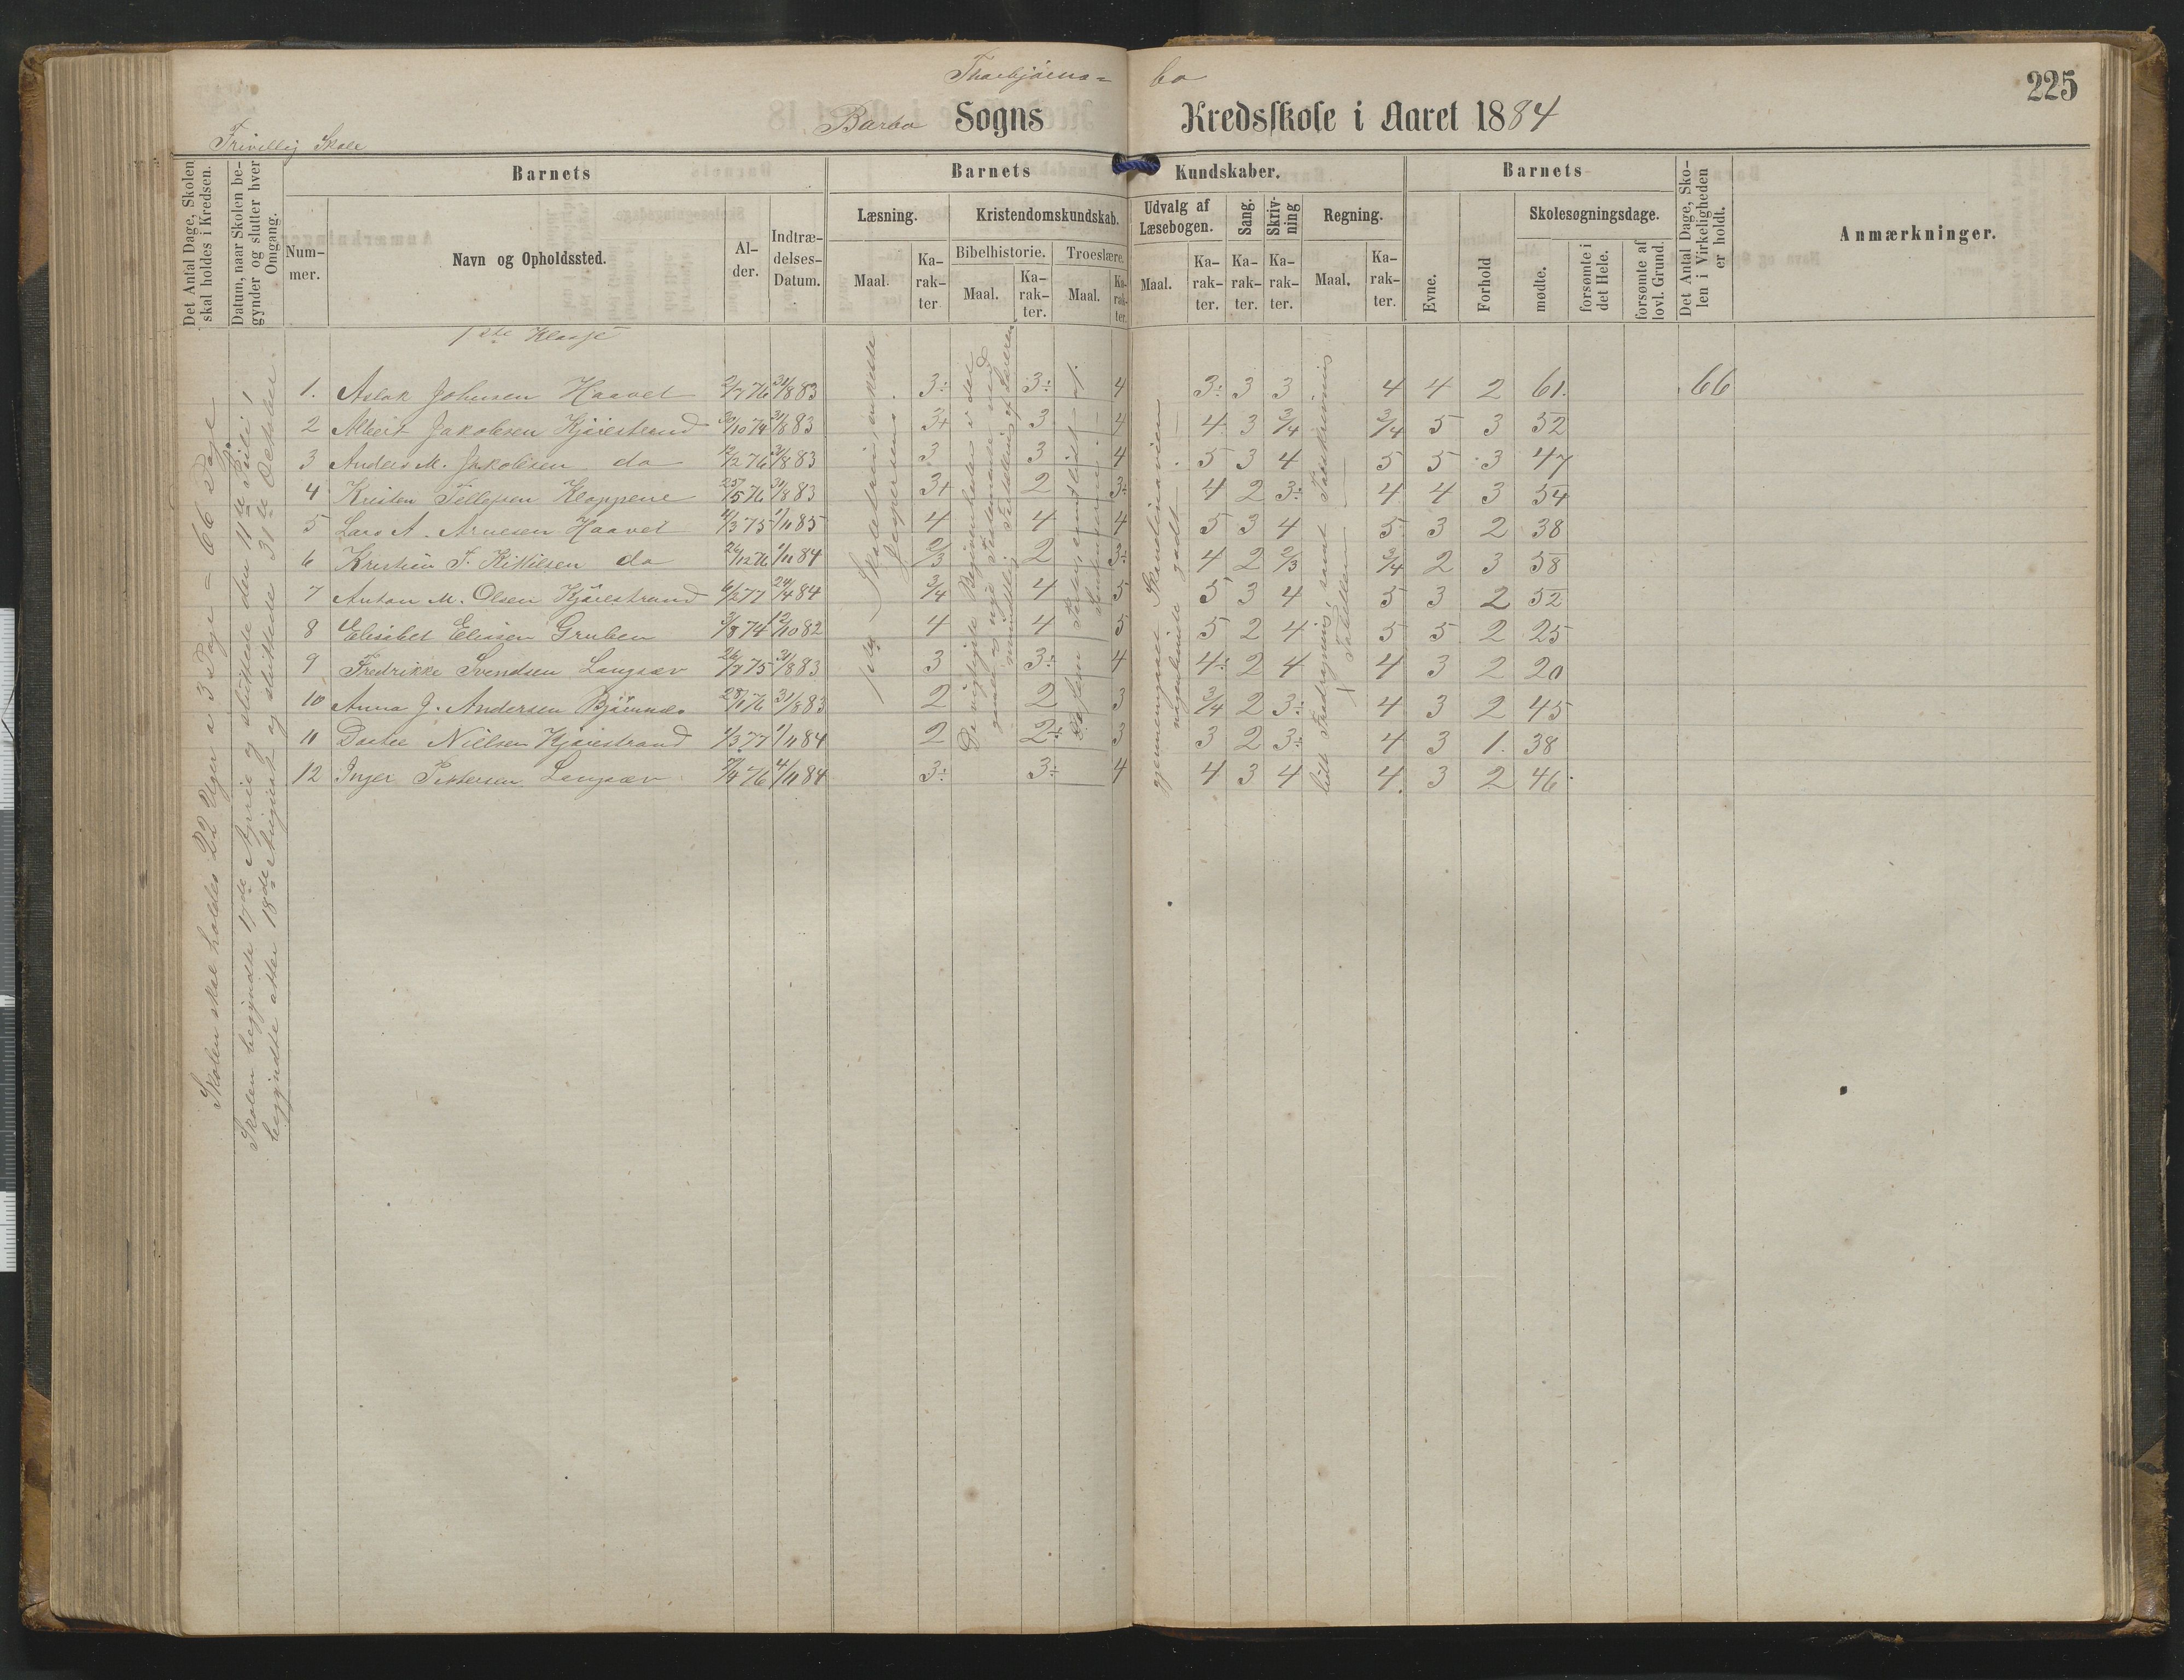 225
Thorbjörns= bo
Barbo Sogns Kredsskole i Aaret 1884
Frivillig Skole
Det Antal Dage, Skolen skal holdes i Kredsen.
Datum, naar Skolen begynder og slutter hver Omgang.
Barnets
Barnets Kundskaber.
Barnets
Det Antal Dage, Skolen i Virkeligheden er holdt.
Anmærkninger.
Nummer.
Navn og Opholdssted.
Alder.
Indtrædelses-Datum.
Læsning.
Kristendomskundskab.
Udvalg af Læsebogen.
Sang.
Skrivning
Regning.
Evne.
Forhold
Skolesøgningsdage.
Bibelhistorie.
Troeslære.
Maal.
Karakter
Maal.
Karakter.
Maal.
Karakter.
Maal.
Karakter.
Karakter.
Karakter.
Maal.
Karakter.
mødte.
forsømte i det Hele.
forsømte af lovl. Grund.
1ste Klasse
1. Aslak Johnsen Haavet 2/7 76 31/8 83 3÷ 3÷ 4 3÷ 3 3 4 4 2 61. 66
2 Albert Jakobsen Kjærestrand 30/10 74 31/8 83 3+ 3 4 4 3 3/4 3/4 5 3 52
3 Anders M. Jakobsen do 12/2 76 31/8 83 3 3 4 5 3 4 5 5 3 47
4 Kristen Tellefsen Kloppene 25/5 76 31/8 83 3+ 2 3÷ 4 2 3÷ 4 4 3 54
5 Lars A. Arnesen Haavet 11/3 75 1/11 85 4 4 4 5 3 4 5 3 2 38
6 Kristian T. Kittilsen do 26/12 76 1/11 84 2/3 2 3÷ 4 2 2/3 3/4 2 3 58
7 Anton M. Olsen Kjærestrand 6/2 77 24/4 84 3/4 4 5 5 3 4 5 3 2 52
8 Elisabet Eliasen Gruben 3/8 74 12/10 82 4 4 5 5 2 4 5 5 2 25
9 Fredrikke Svendsen Langsæv 26/7 75 31/8 83 3 3÷ 4 4÷ 2 4 4 3 2 20
10 Anna J. Andersen Bjørnnæs 28/1 76 31/8 83 2 2 3 3/4 2 3÷ 4 3 2 45
11 Dorthe Nielsen Kjærestrand 1/3 77 1/11 84 2 2÷ 3 3 2 3÷ 4 3 1. 38
12 Inger Pettersen Langsæv 4 76 4/11 84 3÷ 3÷ 4 4 3 4 4. 3 2 46
Skolen skal holdes 22 Uger a 3 Dage = 66 Dage
Skolen begyndte 17de April og sluttede den 11te Juli,
begyndte atter 18de August og sluttede 31te October.
De vigtigste Begivenheder i det
gamle og nye Testamente ved
mundtlig Fortælling af Læreren
gjennemgaaet Skandinavien
nogenlunde godt
lidt Fradragning, samt Talskrivning
X Tabellen